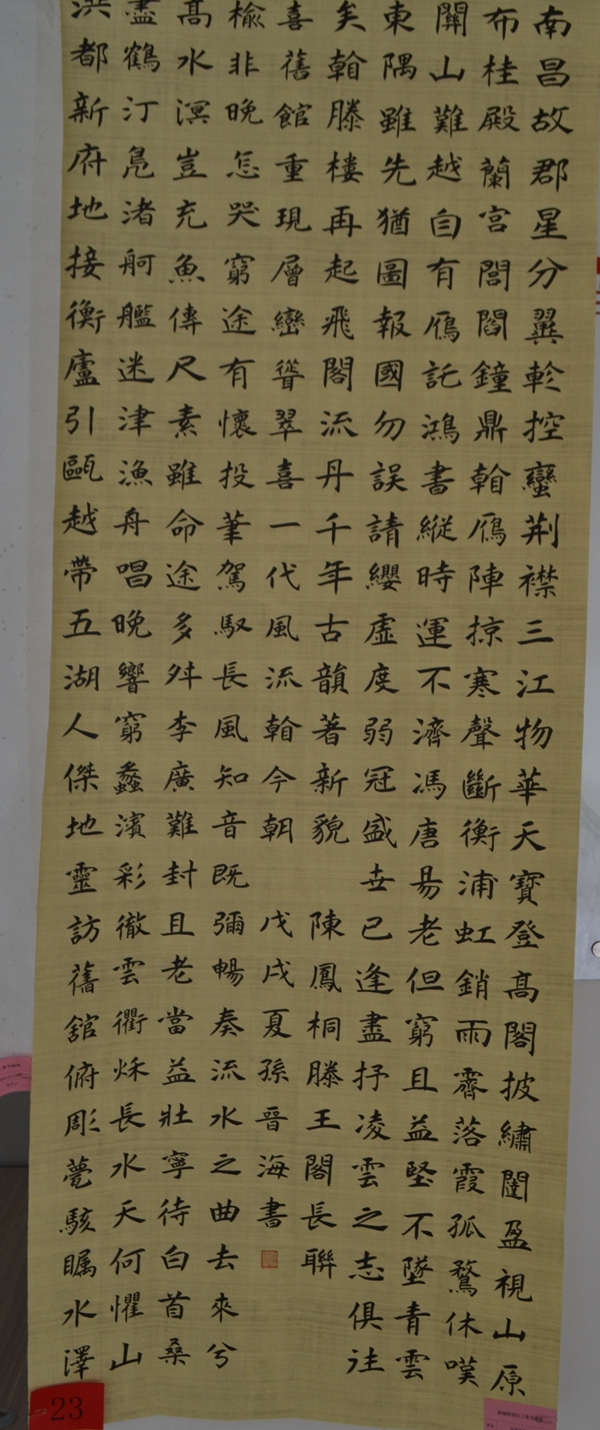 南昌故郡星分翼軫控蠻荆襟三江物華天寶登高閣披繡闥盈視山原
布桂殿蘭宮閭閻鐘鼎翰鴈陣掠寒聲斷衡浦虹銷雨霽落霞孤鶩休嘆
關山難越自有鴈託鴻書縱時運不濟馮唐易老但窮且益堅不墜青雲
東隅雖先猶圖報國勿誤請纓虛度弱冠盛世已逢盡抒凌雲之志俱往
矣翰滕樓再起飛閣流丹千年古韻著新貌
陳鳳桐滕王閣長聯
洪都新府地接衡廬引甌越帶五湖人傑地靈訪舊舘俯彫甍駭矚水澤
盡鶴汀鳧渚舸艦迷津漁舟唱晚響窮蠡濱彩徹雲衢秌長水天何懼山
高水溟豈充魚傳尺素雖命途多舛李廣難封且老當益壯寧待白首桑
榆非晚怎哭窮途有懷投筆駕馭長風知音既彌暢奏流水之曲去來兮
喜舊館重現層巒聳翠喜一代風流翰今朝
戊戌夏孫晉海書
23